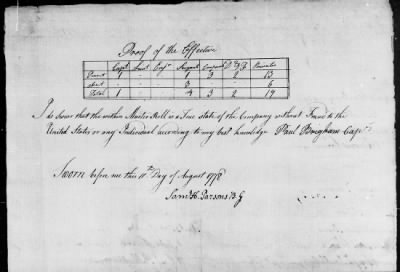 Proof of the Effective
Capt Lieut Ensn Sergant Corporal D & F Privates
Present 1 - - 1 3 2 13
Absent - - - 3 - - 6
Total 1 - - 4 3 2 19
I do swear that the within Muster Roll is a True state of the Company without Fraud to the
United States or any Individual according to my best knowledge Paul Brigham Capt
Sworn before me this 11th Day of August 1778
Saml H. Parsons B. G